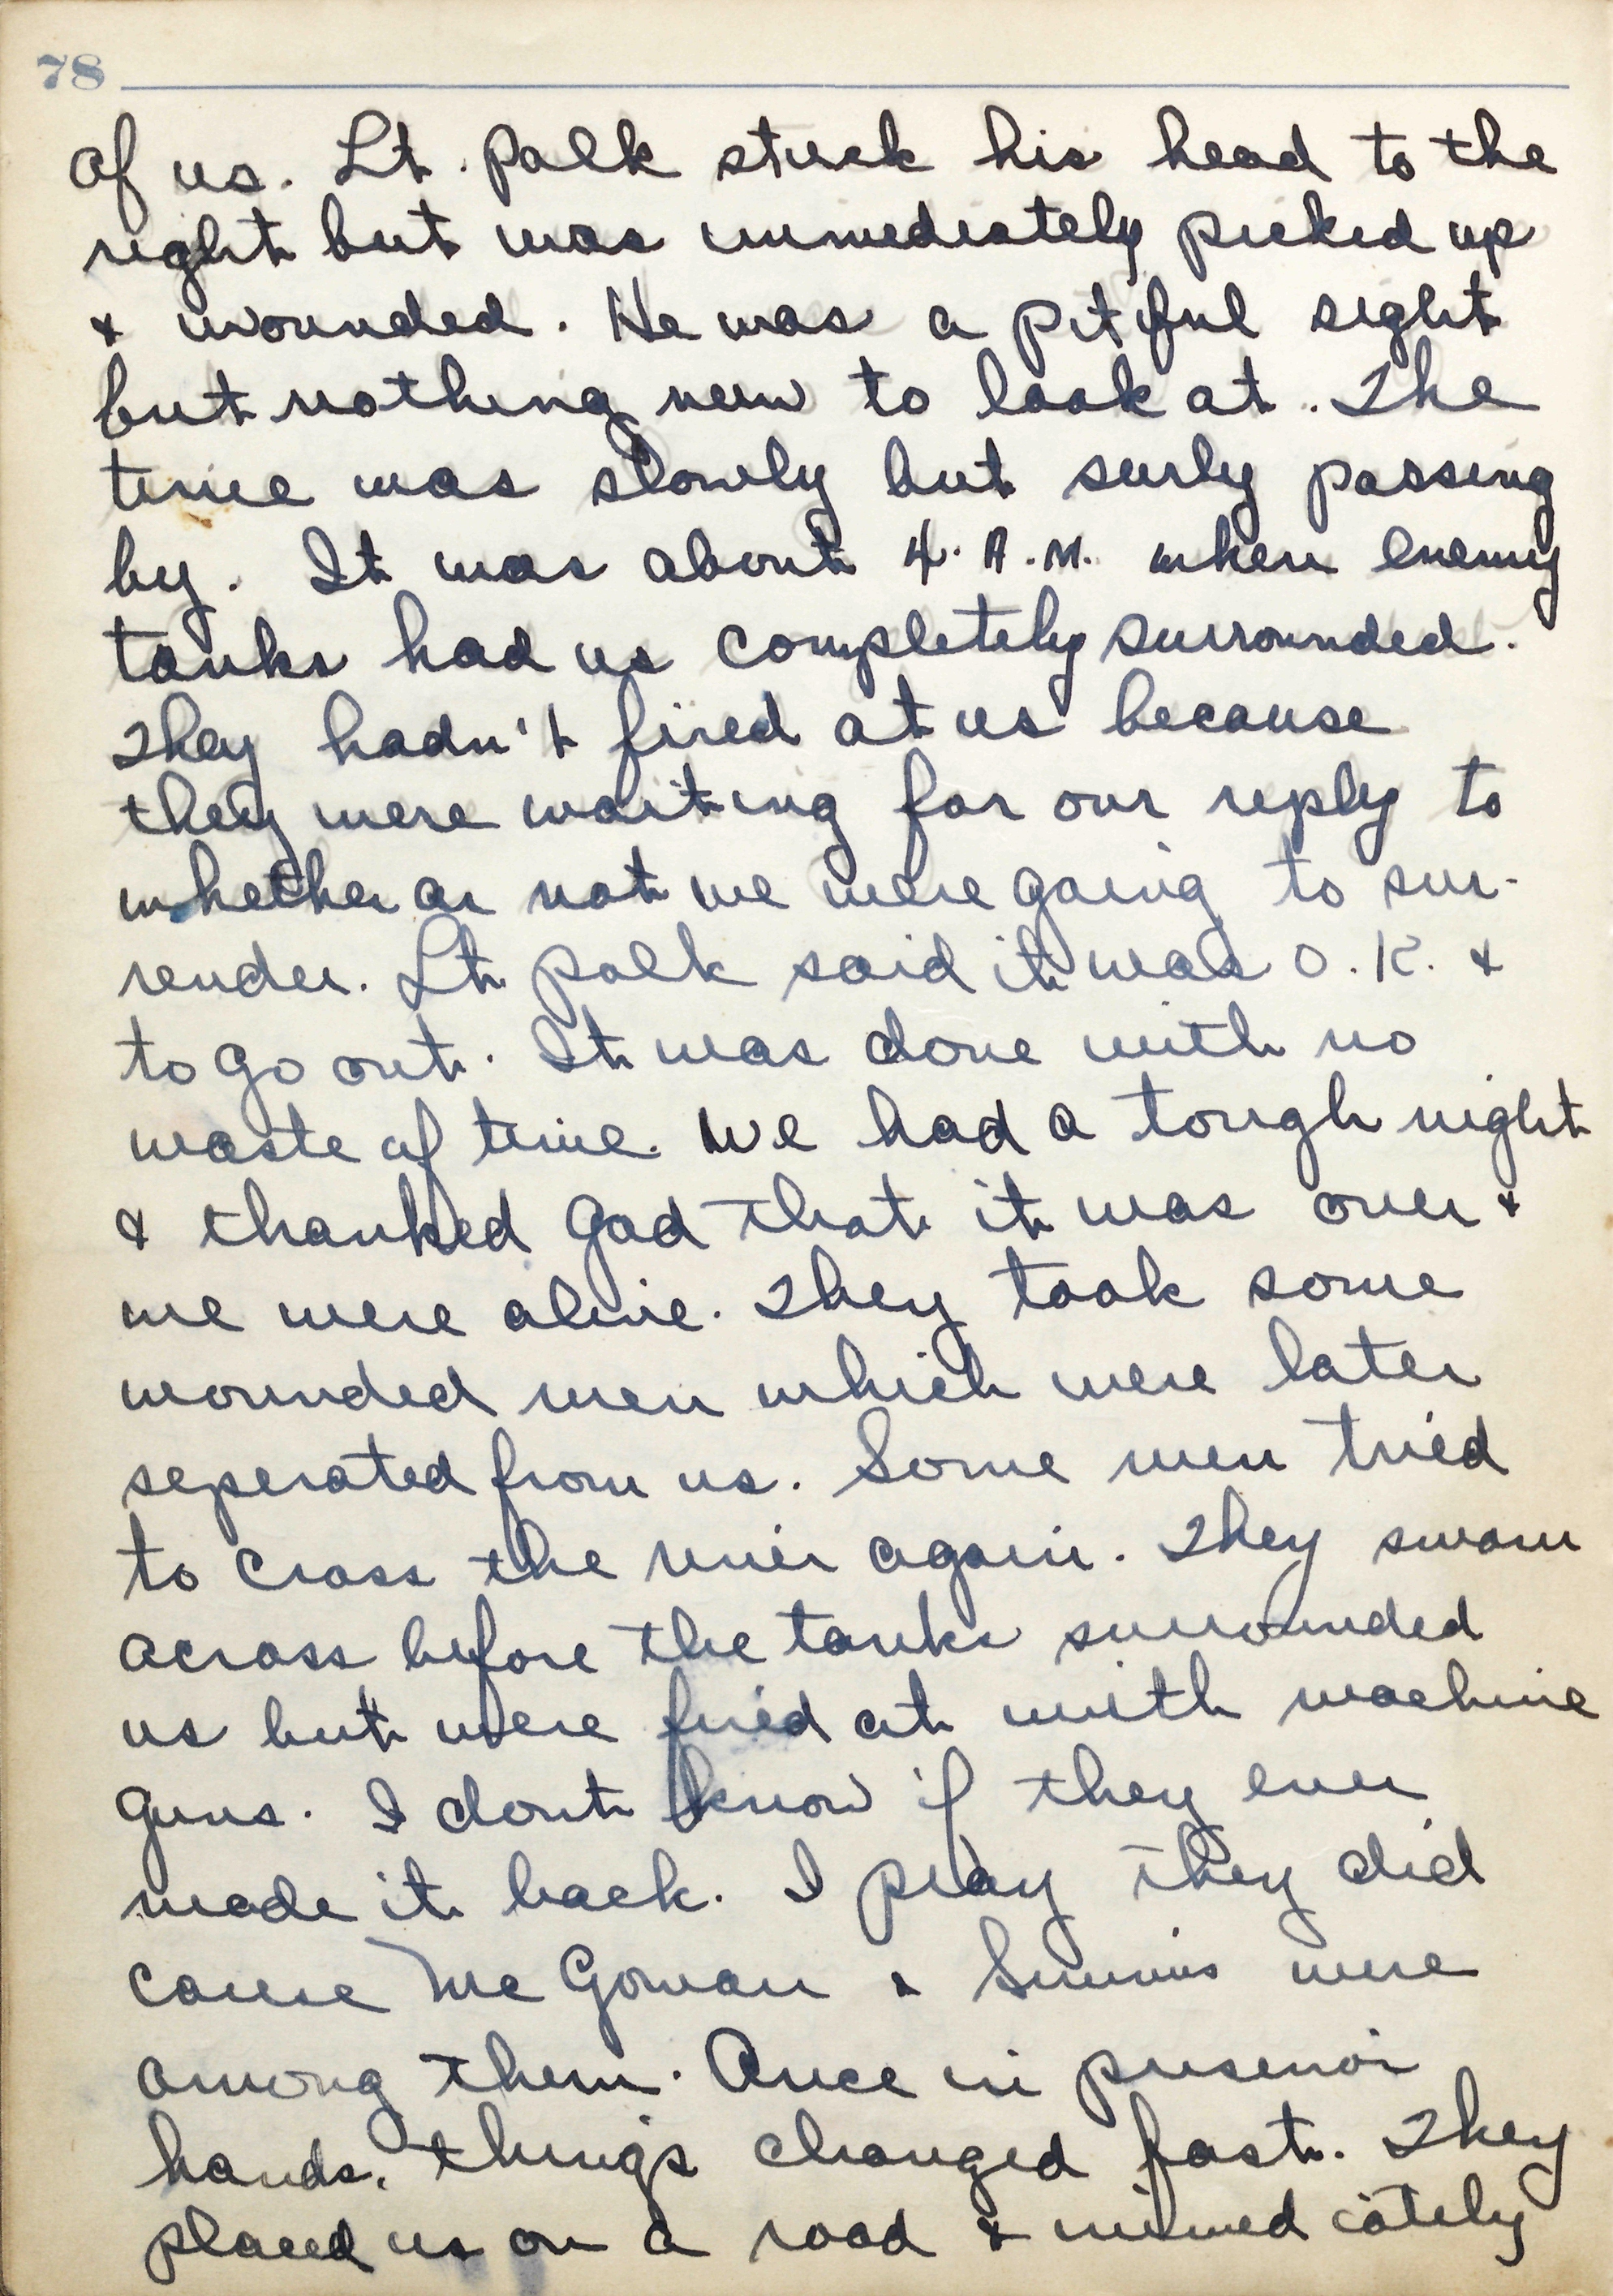 78
of us. Lt. Polk stuck his head to the
right but was immediately picked up
& wounded. He was a pitiful sight
but nothing new to look at. The
time was slowly but surly passing
by. It was about 4. A.M. when enemy
tanks had us completely surrounded.
They hadn't fired at us because
they were waiting for our reply to
whether or not we were going to sur-
render. Lt. Polk said it was O.K. &
to go out. It was done with no
waste of time. We had a tough night
& thanked God that it was over &
we were alive. They took some
wounded men which were later
seperated from us. Some men tried
to cross the river again. They swam
across before the tanks surrounded
us but were fired at with machine
guns. I dont know if they ever
made it back. I pray they did
cause McGowan & Simmis were
among them. Once in prisenor
hands, things changed fast. They
placed us on a road & immediately